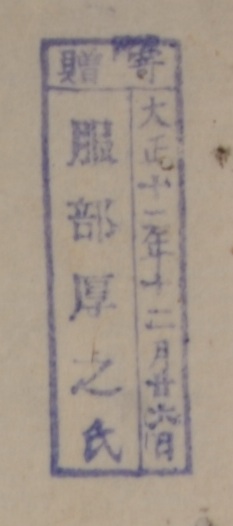 寄贈
大正十二年十二月廿六日
服部厚之氏